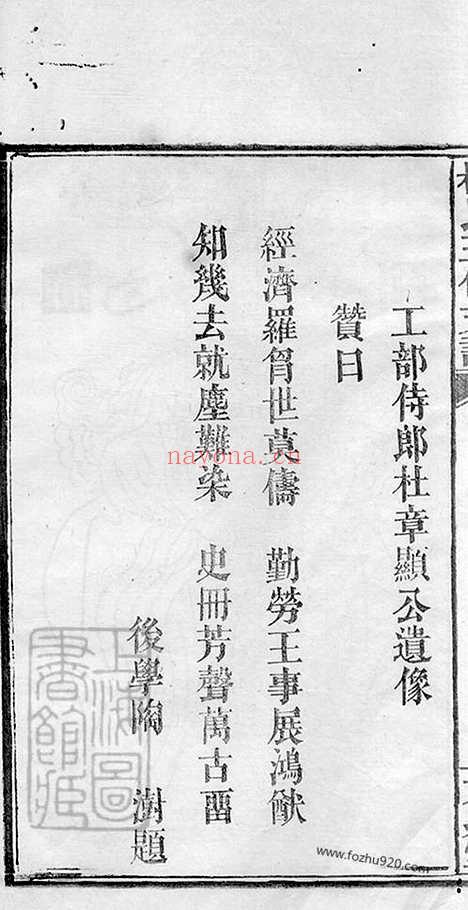 工部侍郎杜章顯公遺像
贊曰
經濟羅胷世莫儔 勤勞王事展鴻猷
知幾去就塵難染 史冊芳聲萬古畱
後學陶 澍題
上海圖書館藏
nayona.cn
www.fozhu920.com